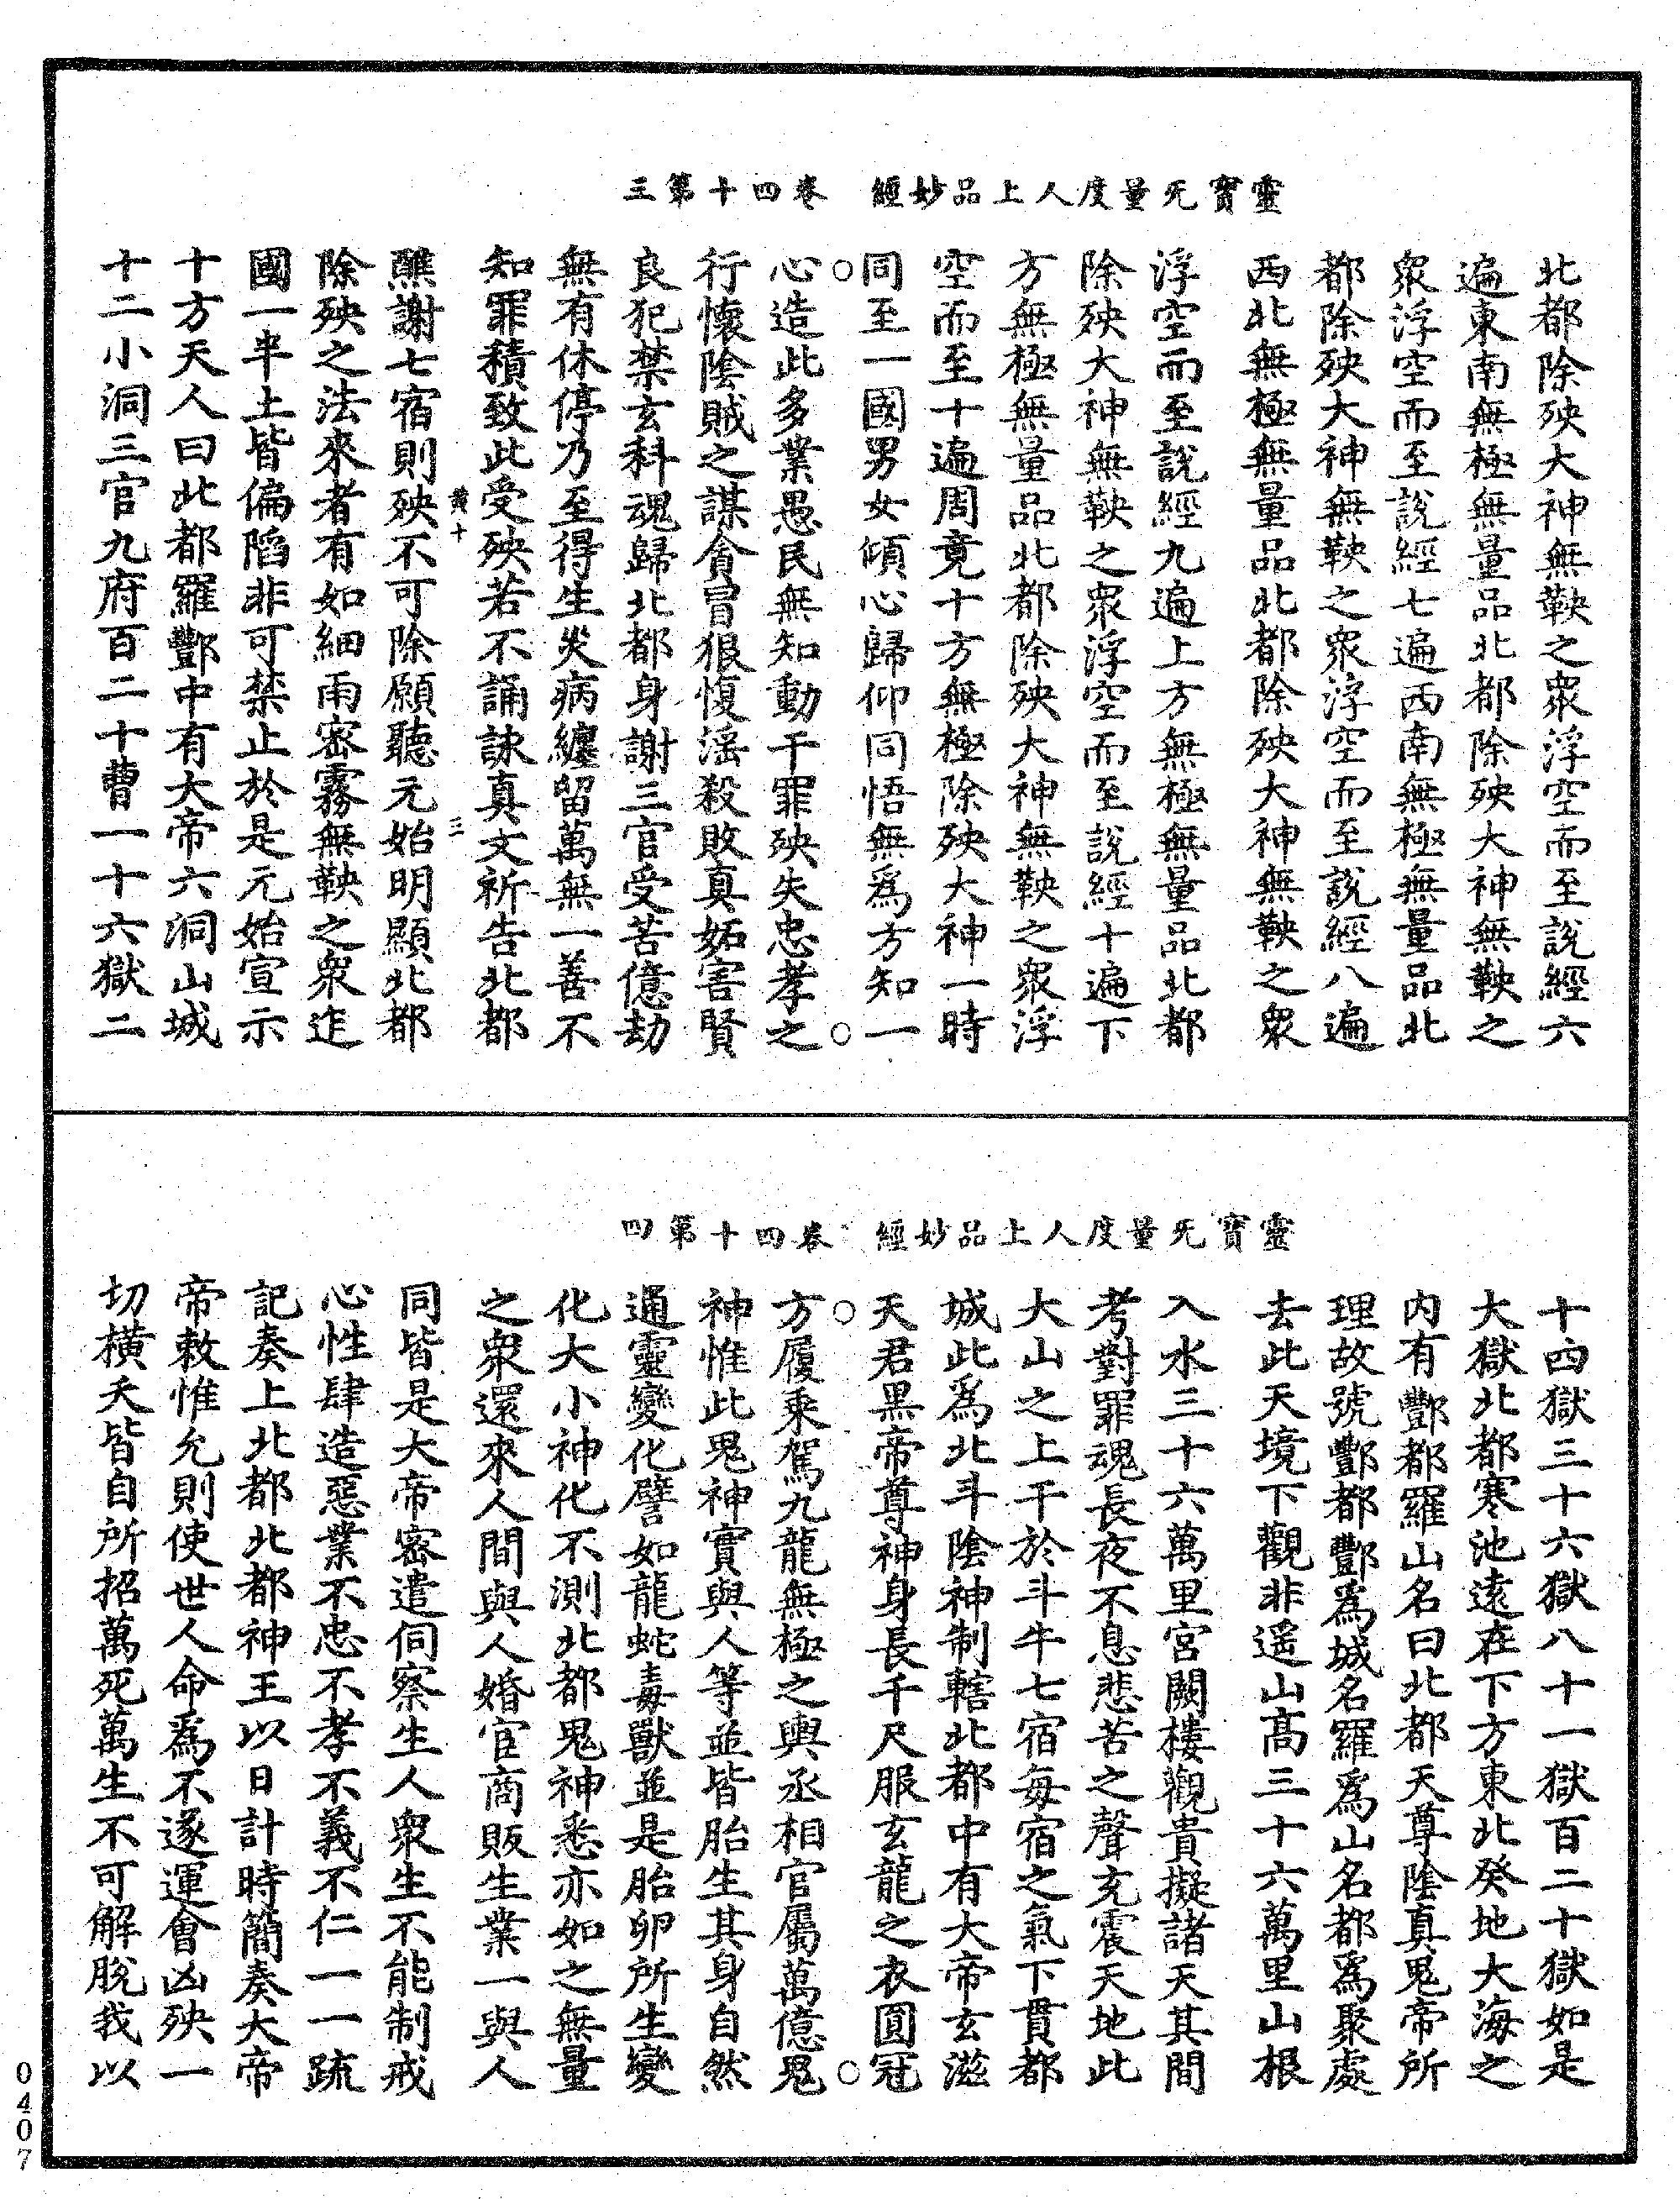 靈寶无量度人上品妙經　卷四十第三
北都除殃大神無鞅之眾浮空而至說經六
遍東南無極無量品北都除殃大神無鞅之
眾浮空而至說經七遍西南無極無量品北
都除殃大神無鞅之眾浮空而至說經八遍
西北無極無量品北都除殃大神無鞅之眾
浮空而至說經九遍上方無極無量品北都
除殃大神無鞅之眾浮空而至說經十遍下
方無極無量品北都除殃大神無鞅之眾浮
空而至十遍周竟十方無極除殃大神一時
同至一國男女傾心歸仰同悟無為方知一
心造此多業愚民無知動干罪殃失忠孝之
行懷陰賊之謀貪冒狠愎淫殺敗真妬害賢
良犯禁玄科魂歸北都身謝三官受苦億劫
無有休停乃至得生災病纏留萬無一善不
知罪積致此受殃若不誦詠真文祈告北都
黃十　三
醮謝七宿則殃不可除願聽元始明顯北都
除殃之法來者有如細雨密霧無鞅之眾迮
國一半土皆偏陷非可禁止於是元始宣示
十方天人曰北都羅酆中有大帝六洞山城
十二小洞三官九府百二十曹一十六獄二
靈寶无量度人上品妙經　卷四十第四
十四獄三十六獄八十一獄百二十獄如是
大獄北都寒池遠在下方東北癸地大海之
內有酆都羅山名曰北都天尊陰真鬼帝所
理故號酆都酆為城名羅為山名都為聚處
去此天境下觀非遥山高三十六萬里山根
入水三十六萬里宮闕樓觀貴擬諸天其間
考對罪魂長夜不息悲苦之聲充震天地此
大山之上干於斗牛七宿每宿之氣下貫都
城此為北斗陰神制轄北都中有大帝玄滋
天君黑帝尊神身長千尺服玄龍之衣圓冠
方履乘駕九龍無極之輿丞相官屬萬億鬼
神惟此鬼神實與人等並皆胎生其身自然
通靈變化譬如龍蛇毒獸並是胎卵所生變
化大小神化不測北都鬼神悉亦如之無量
之眾還來人間與人婚宦商販生業一與人
同皆是大帝密遣伺察生人眾生不能制戒
心性肆造惡業不忠不孝不義不仁一一疏
記奏上北都北都神王以日計時簡奏大帝
帝敕惟允則使世人命為不遂運會凶殃一
切橫夭皆自所招萬死萬生不可解脫我以
0407